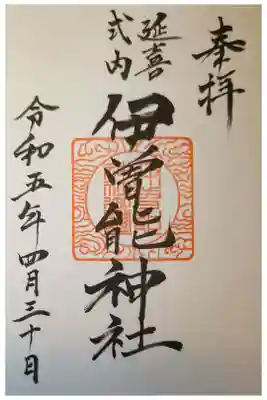 奉拝
延喜
式内
伊曽能神社
令和五年四月三十日